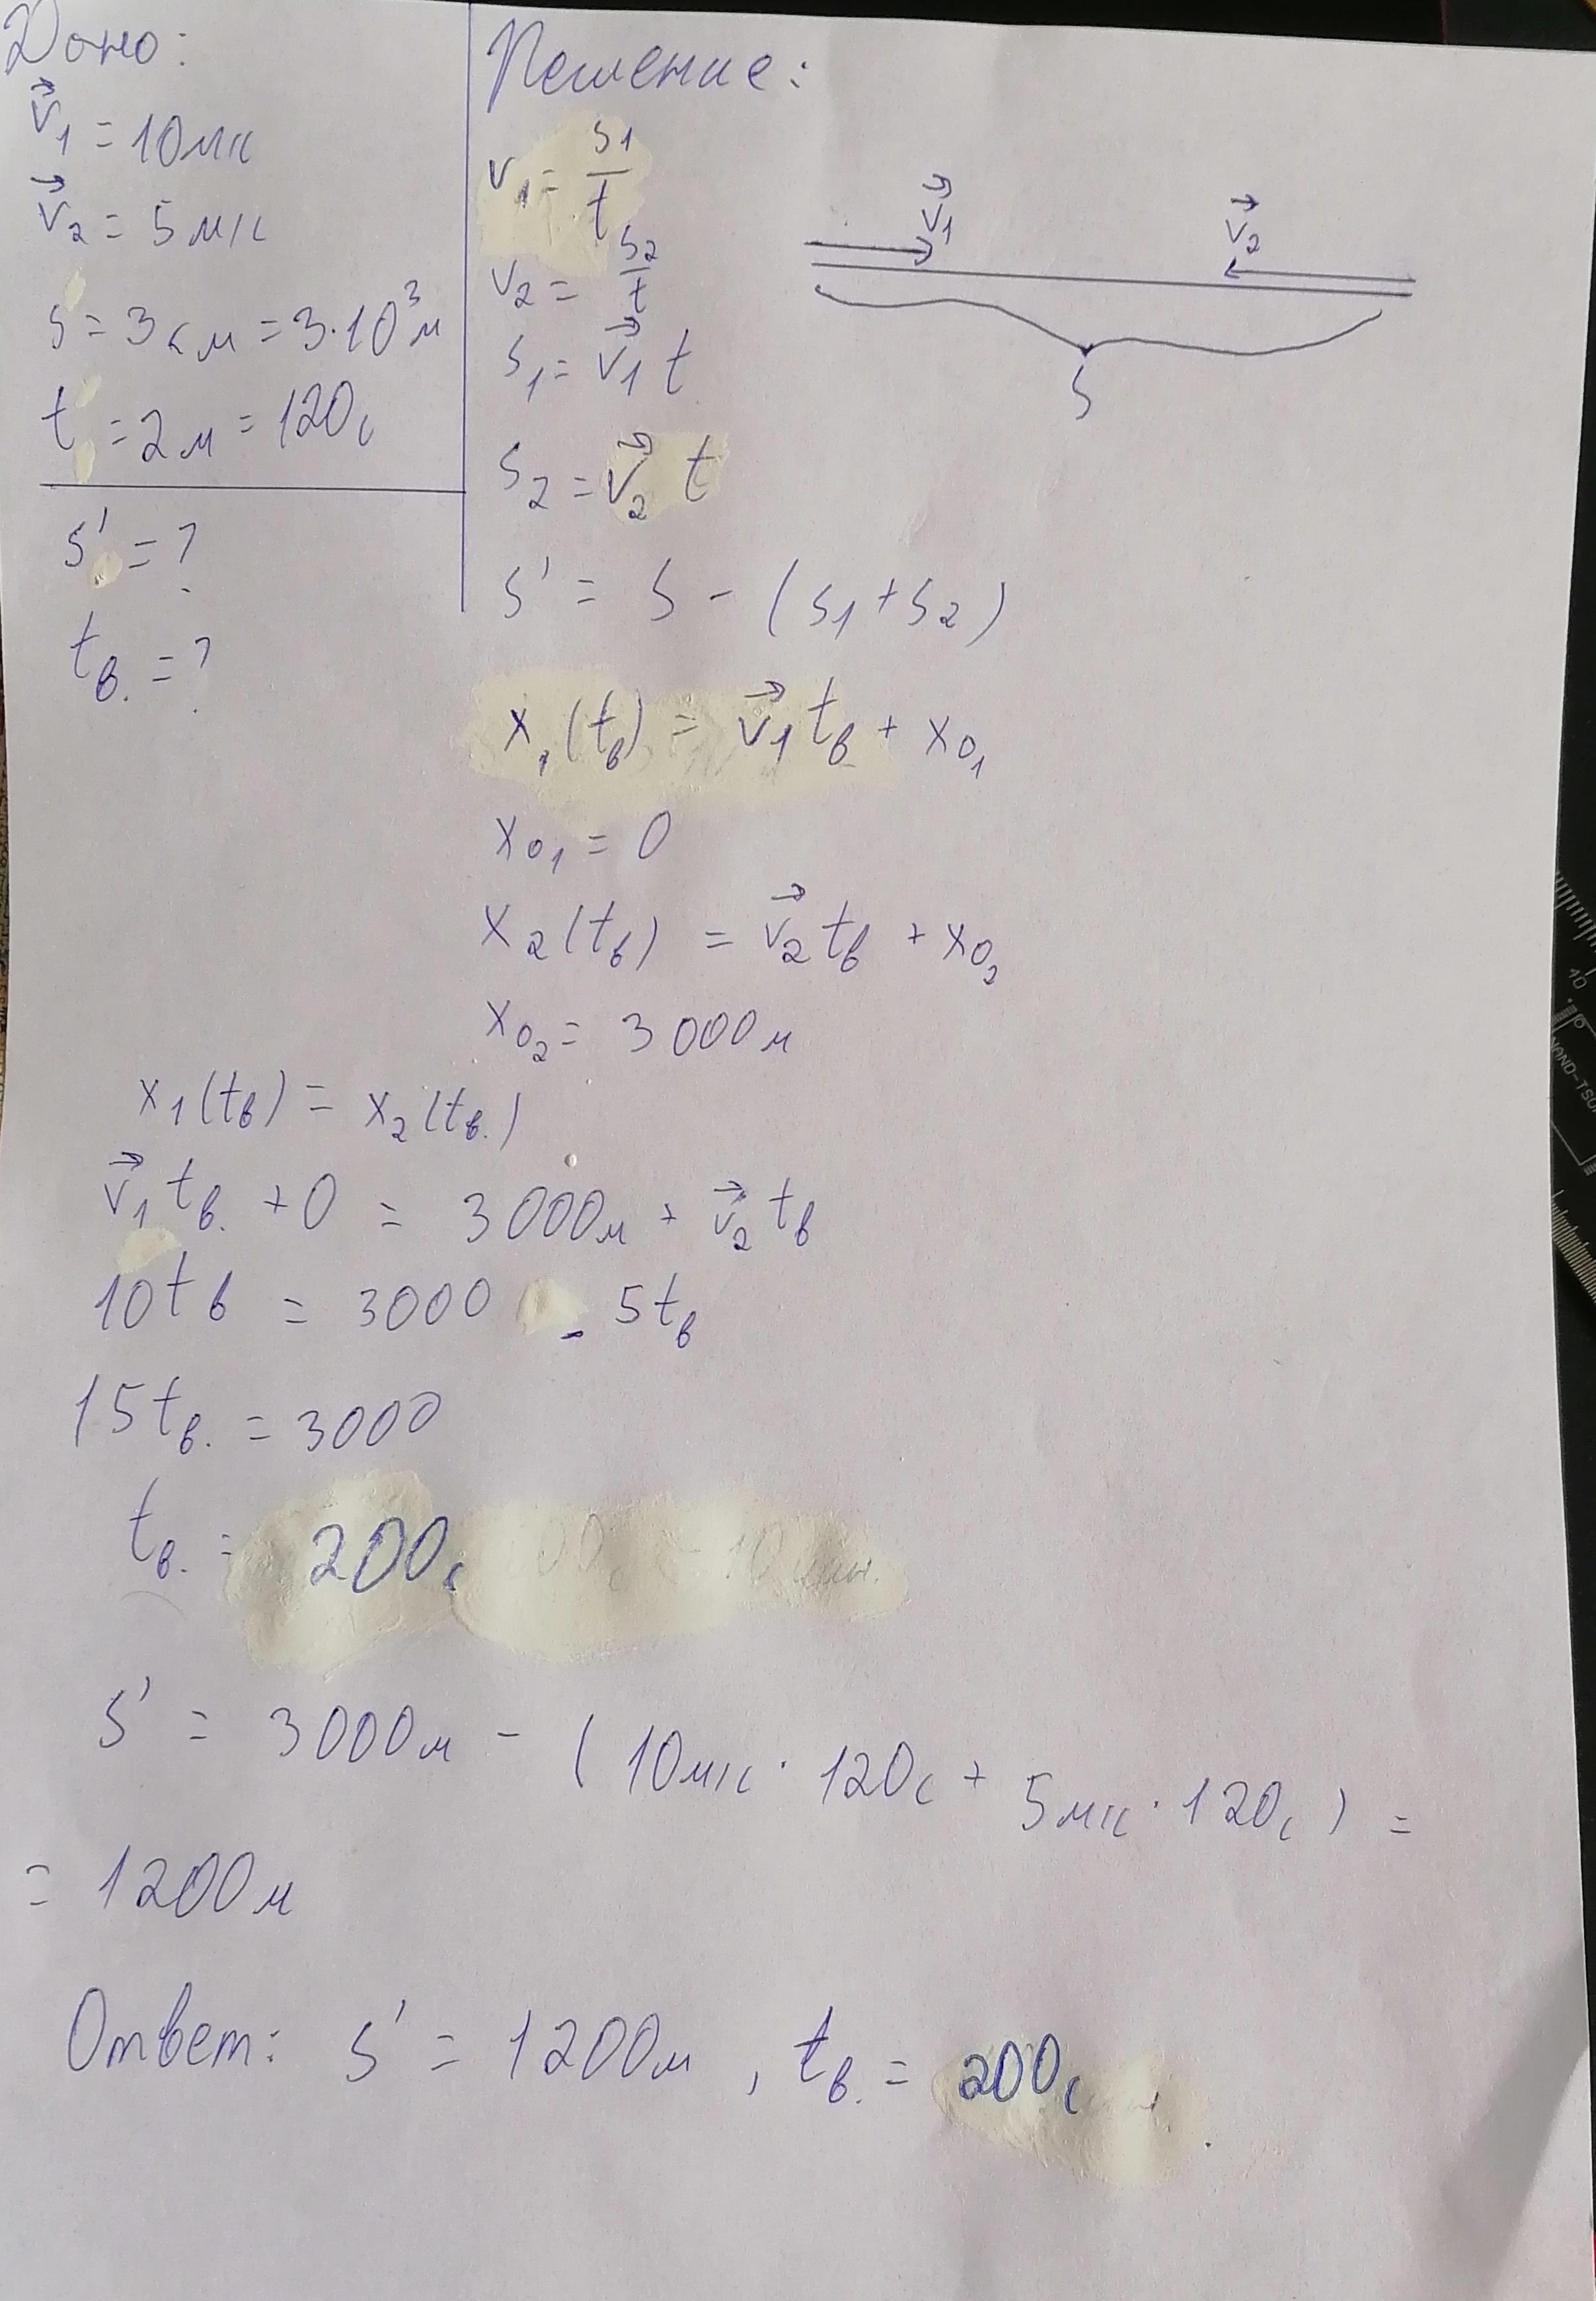 Дано:
v⃗₁ = 10м/с
v⃗₂ = 5м/с
s = 3км = 3·10³м
t = 2м = 120с
s' = ?
tв. = ?
Решение:
v₁ = s₁/t
v₂ = s₂/t
s₁ = v⃗₁ t
s₂ = v⃗₂ t
s' = s - (s₁ + s₂)
v⃗₁
v⃗₂
s
x₁(tв) = v⃗₁ tв + x₀₁
x₀₁ = 0
x₂(tв) = v⃗₂ tв + x₀₂
x₀₂ = 3000м
x₁(tв) = x₂(tв.)
v⃗₁ tв. + 0 = 3000м + v⃗₂ tв
10tв = 3000 - 5tв
15tв. = 3000
tв. = 200с
s' = 3000м - (10м/с · 120с + 5м/с · 120с) =
= 1200м
Ответ: s' = 1200м, tв. = 200с.
10